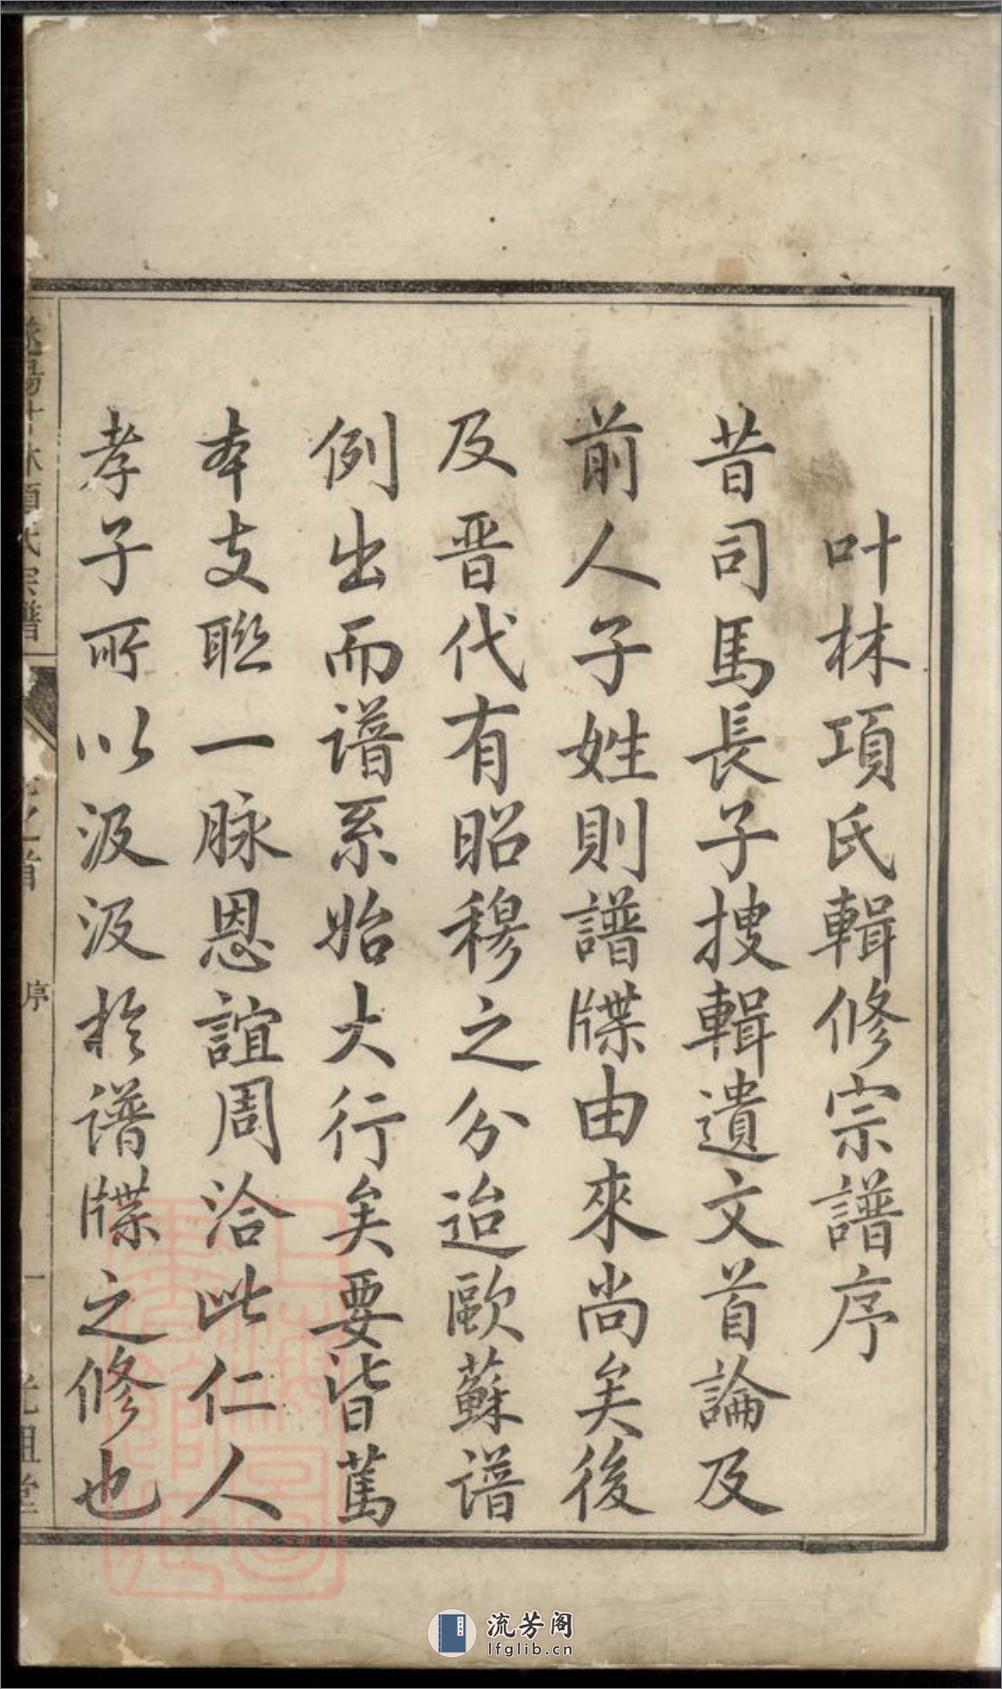 叶林項氏輯修宗譜序
昔司馬長子搜輯遺文首論及
前人子姓則譜牒由來尚矣後
及晋代有昭穆之分迨歐蘇谱
例出而谱系始大行矣要皆篤
本支聮一脉恩誼周洽此仁人
孝子所以汲汲於谱牒之修也
叶林項氏宗譜
之首
序
一
光祖堂
流芳阁
lfglib.cn